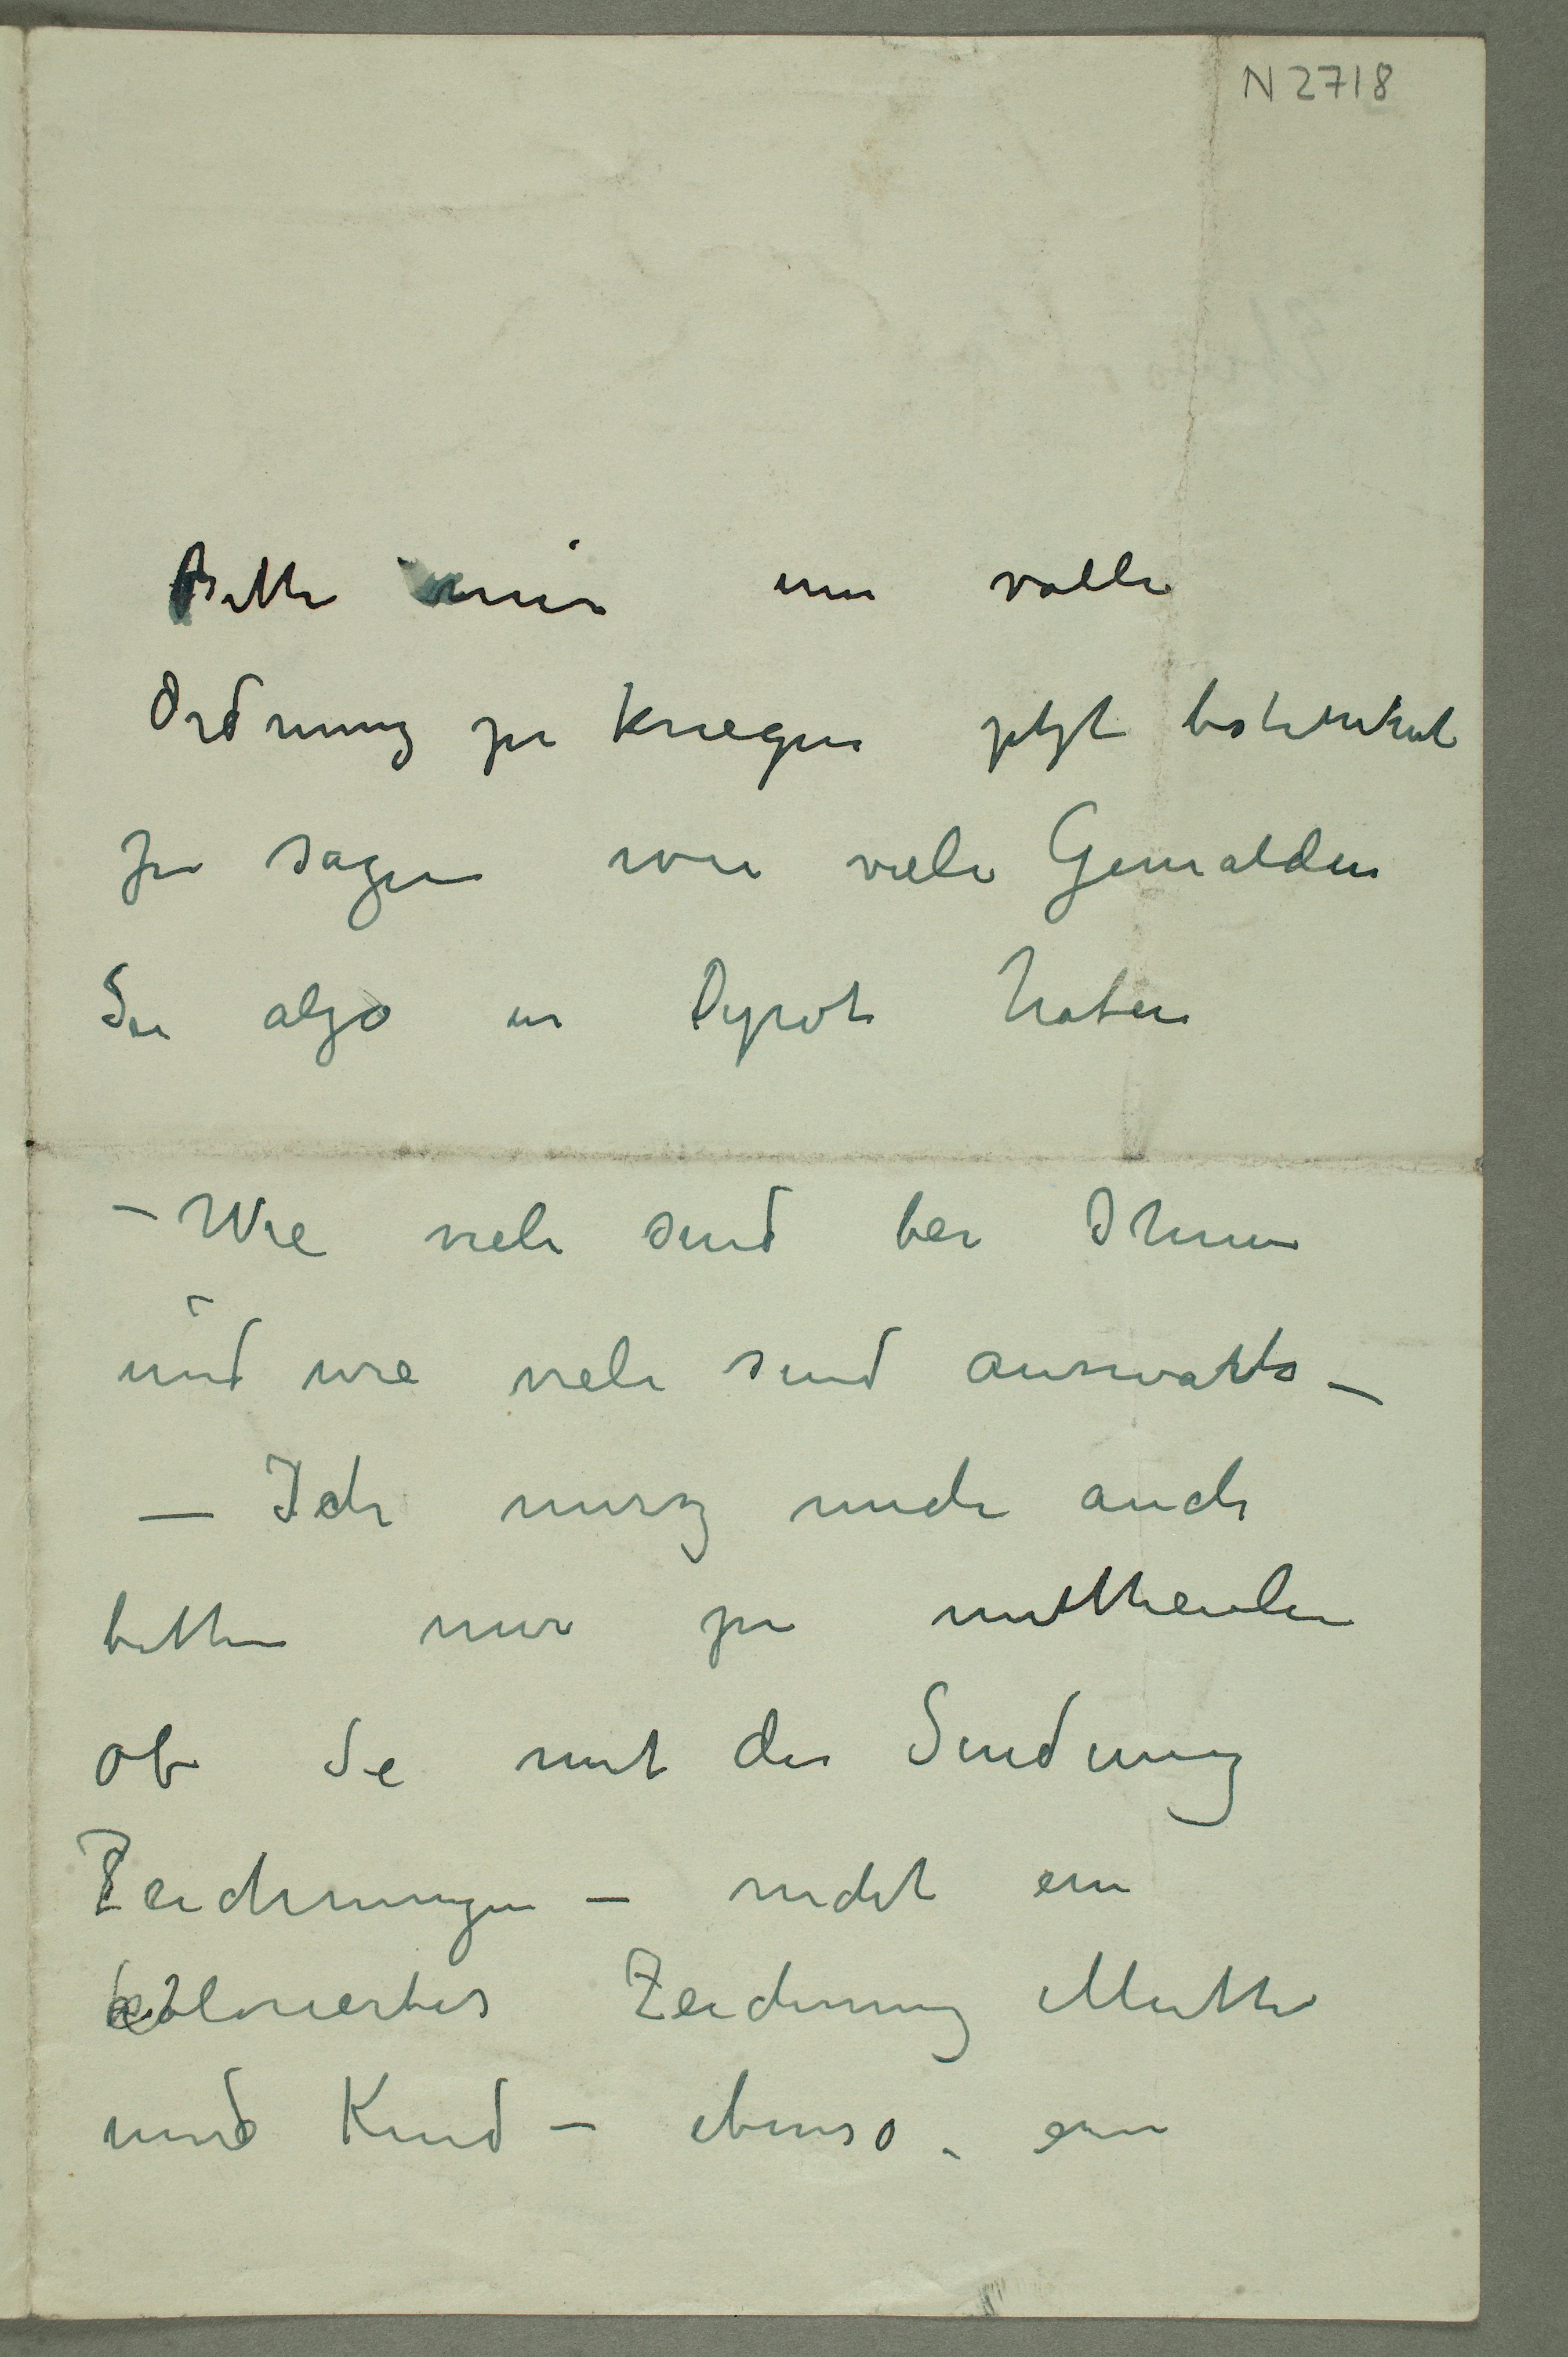 N 2718
Bitte mir um volle
Ordnung zu kriegen jetzt bestimmt
zu sagen wie viele Gemalden
Sie also in Depot haben
– Wie viele sind bei Ihnen
und wie viele sind auswarts –
– Ich musz mich auch
bitten mir zu mittheilen
ob Sie mit der Sendung
Zeichnungen – nicht ein
koloriertes Zeichnung Mutter
und Kind – ebenso – ein